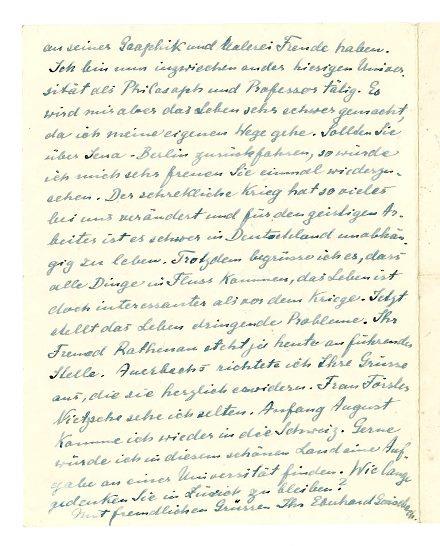 an seiner Graphik und Malerei Freude haben.
Ich bin nun inzwischen an der hiesigen Univer
sität als Philosoph und Professor tätig. Es
wird mir aber das Leben sehr schwer gemacht,
da ich meine eigenen Wege gehe. Sollten Sie
über Jena - Berlin zurückfahren, so würde
ich mich sehr freuen Sie einmal wiederzu-
sehen. Der schreckliche Krieg hat so vieles
bei uns verändert und für den geistigen Ar-
beiter ist es schwer in Deutschland unabhän-
gig zu leben. Trotzdem begrüsse ich es, dass
alle Dinge in Fluss kommen, das Leben ist
doch interessanter als vor dem Kriege. Jetzt
stellt das Leben dringende Probleme. Ihr
Freund Rathenau steht ja heute an führender
Stelle. Auerbachs richtete ich Ihre Grüsse
aus, die sie herzlich erwidern. Frau Förster
Nietzsche sehe ich selten. Anfang August
komme ich wieder in die Schweiz. Gerne
würde ich in diesem schönen Land eine Auf-
gabe an einer Universität finden. Wie lange
gedenken Sie in Zürich zu bleiben?
Mit freundlichen Grüssen Ihr Eberhard Grisebach.